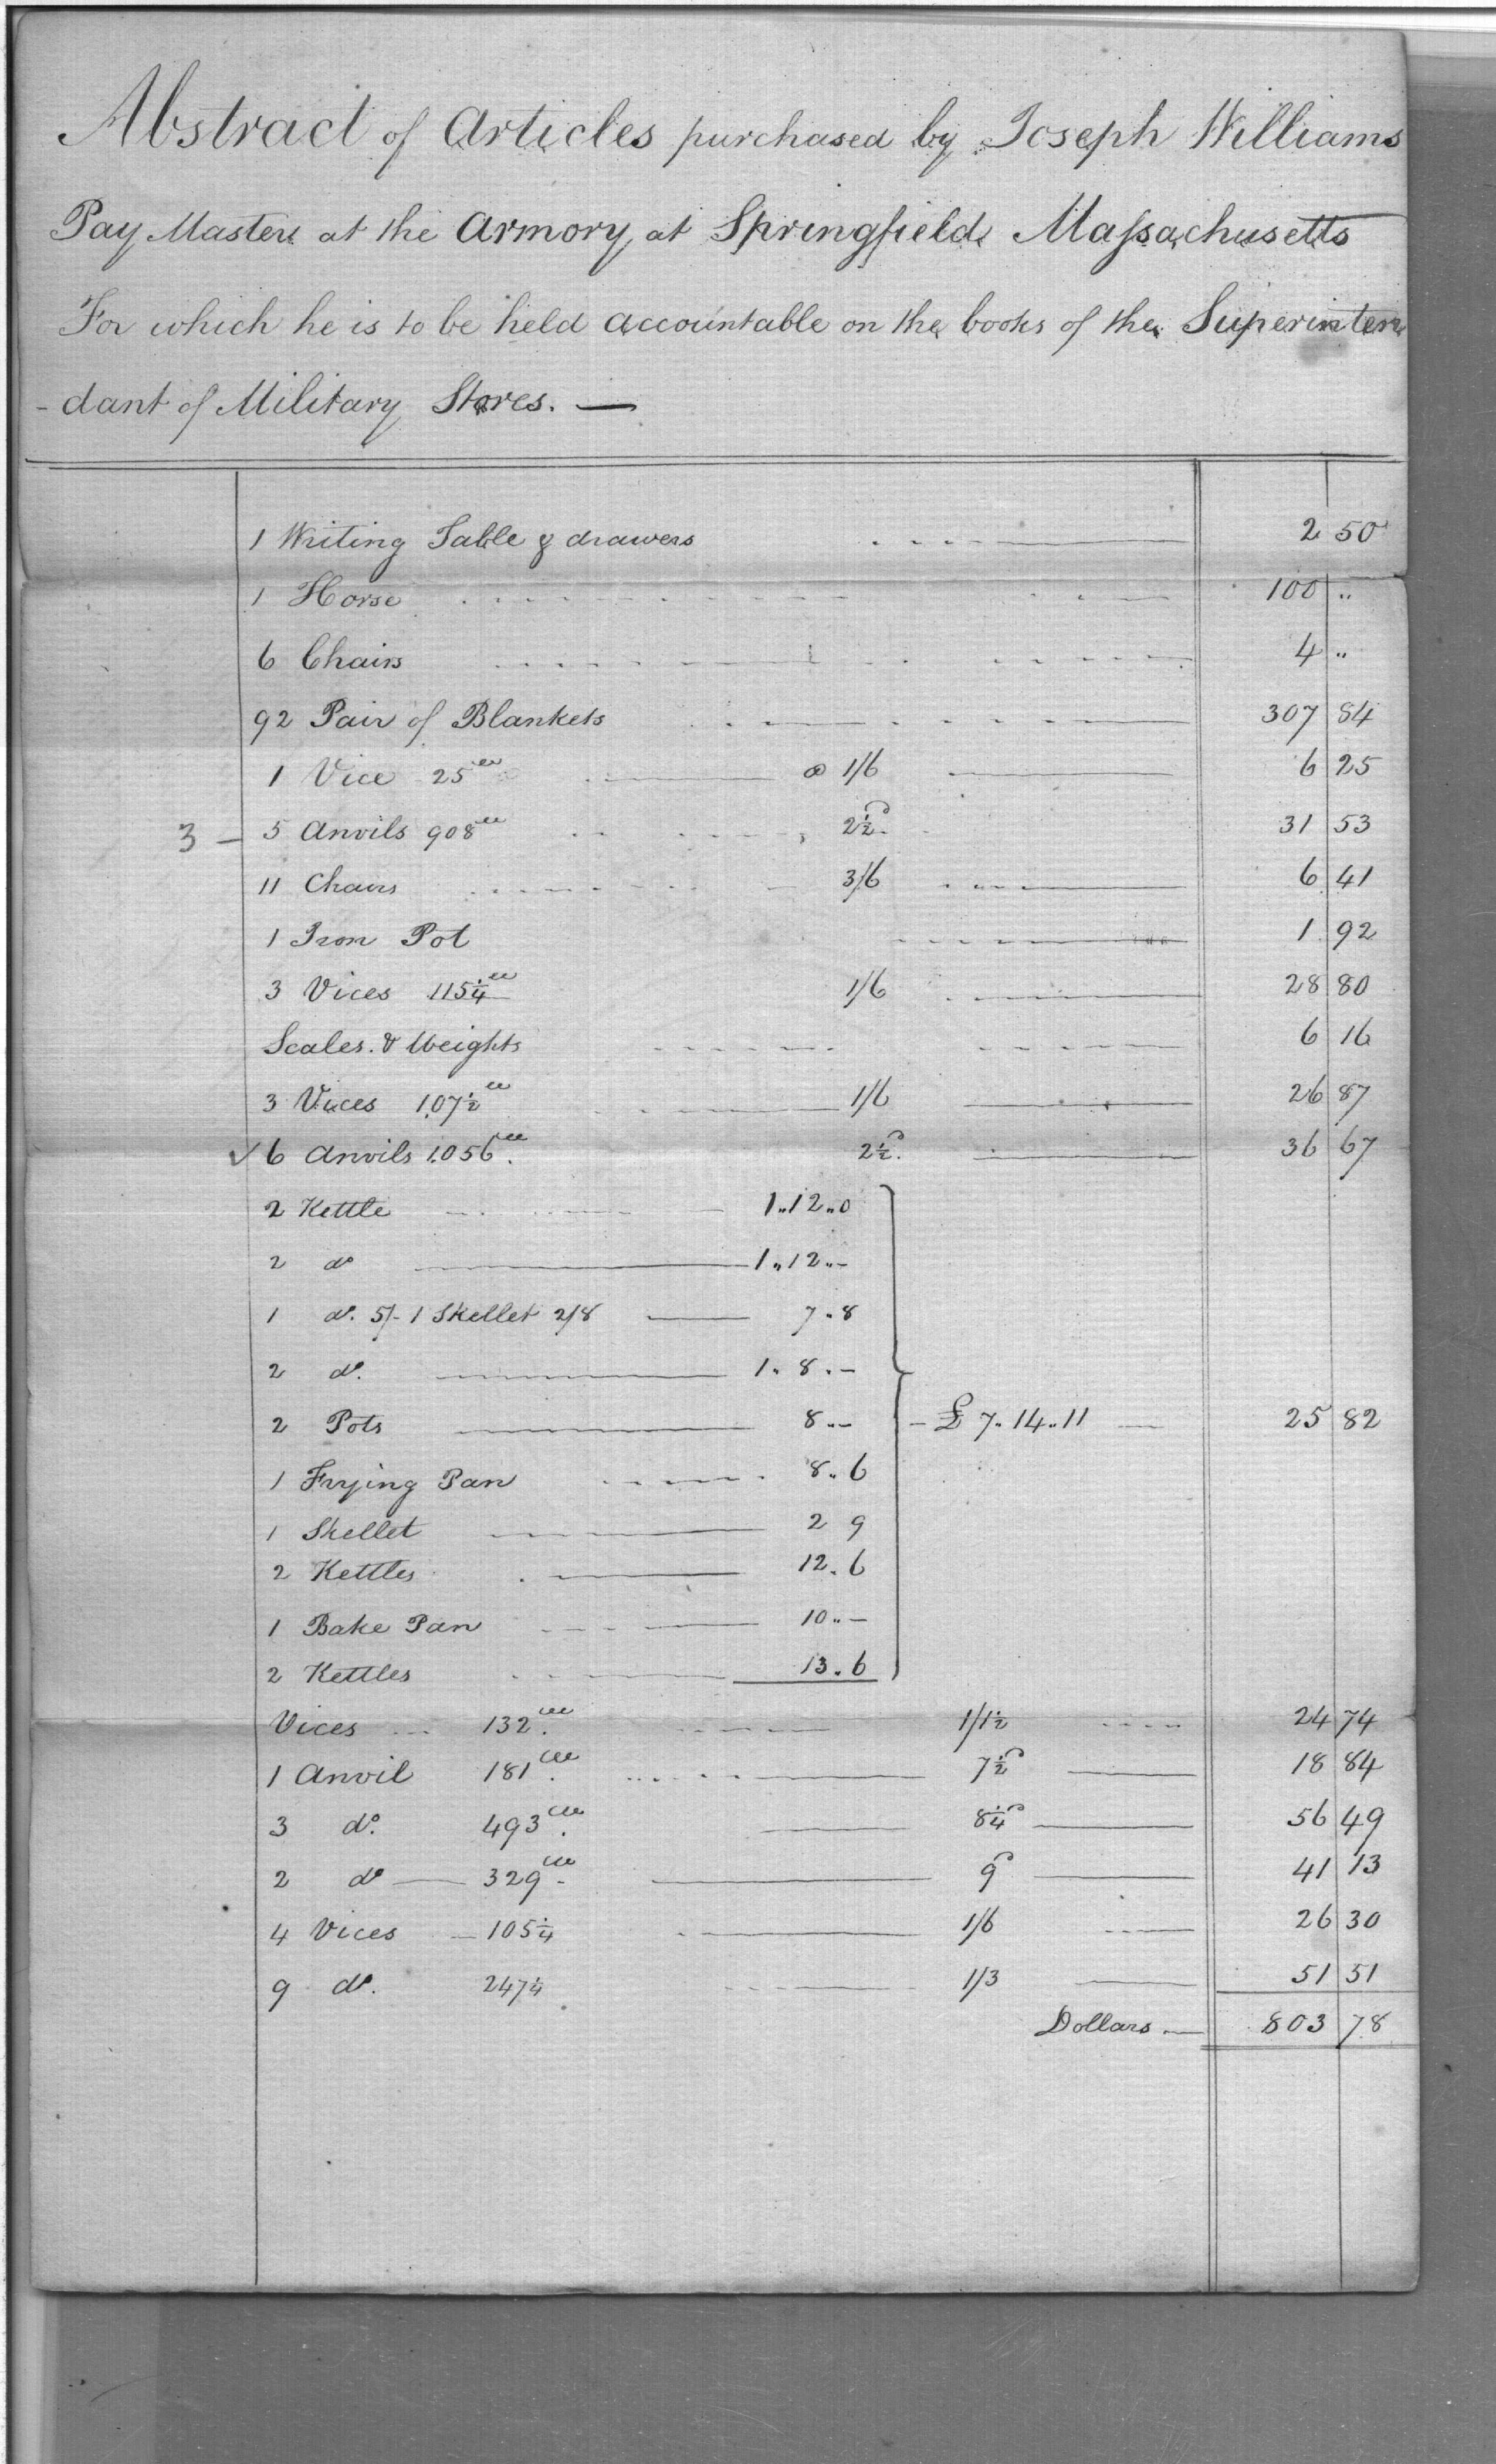 Abstract of Articles purchased by Joseph Williams
Pay Master at the Armory at Springfield Massachusetts
For which he is to be held accountable on the books of the Superinten
-dant of Military Stores. —
1 Writing Table & drawers 2 50
1 Horse 100 "
6 Chairs 4 "
92 Pair of Blankets 307 84
1 Vice 25 lb @ 1/6 6 25
3 — 5 Anvils 908 lb 2½d 31 53
11 Chairs 3/6 6 41
1 Iron Pot 1 92
3 Vices 115¼ lb 1/6 28 80
Scales & Weights 6 16
3 Vices 107½ lb 1/6 26 87
✓ 6 Anvils 1056 lb 2½d 36 67
2 Kettle 1"12"0
2 do 1"12"-
1 do. 5/- 1 Skellet 2/8 7"8
2 do. 1"8"-
2 Pots 8"- — £7"14"11 25 82
1 Frying Pan 8"6
1 Skellet 2 9
2 Kettles 12.6
1 Bake Pan 10"-
2 Kettles 13.6
Vices 132 lb 1/1½ 24 74
1 Anvil 181 lb 7½d 18 84
3 do. 493 lb 8¼d 56 49
2 do 329 lb 9d 41 13
4 Vices 105¼ 1/6 26 30
9 do. 247¼ 1/3 51 51
Dollars — 803 78